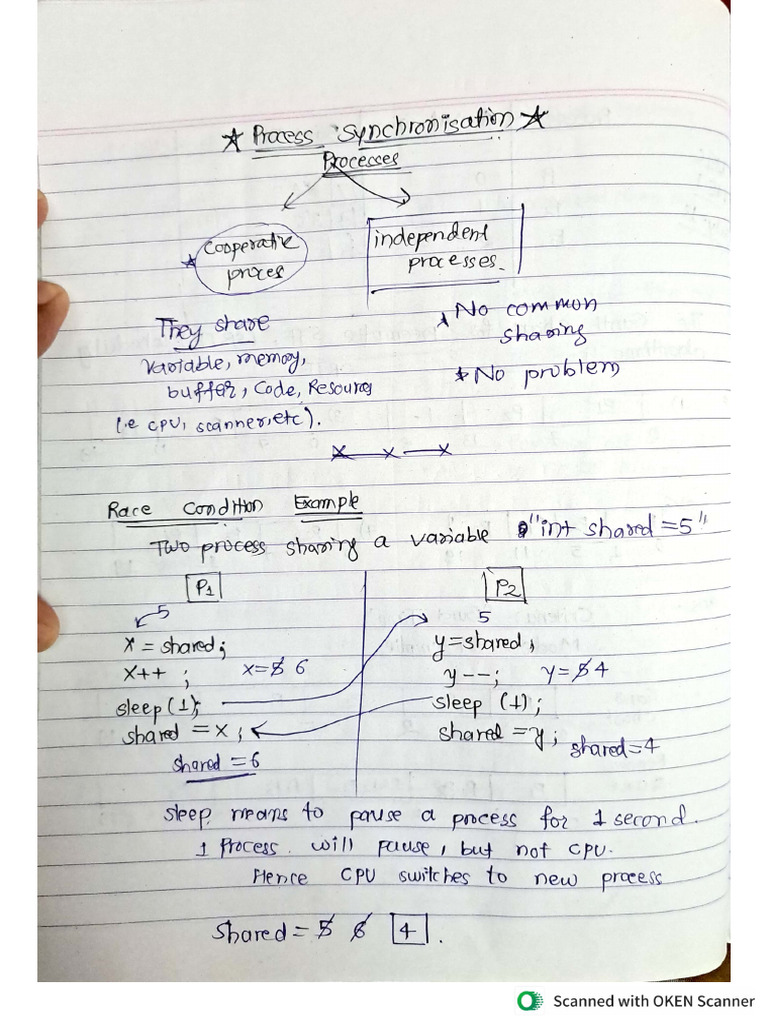 ★ Process Synchronisation ★
Processes
Cooperative
proces
independent
processes.
They share
variable, memory,
buffer, Code, Resources
(i.e CPU, scanner, etc).
No common
sharing
No problem
x — x — x
Race Condition Example
Two process sharing a variable "int shared = 5"
P1
P2
5
5
x = shared;
y = shared;
x++ ;
x = 5 6
y --;
y = 5 4
sleep (1);
sleep (1);
shared = x;
shared = y;
shared = 4
shared = 6
sleep means to pause a process for 1 second.
1 Process will pause, but not CPU.
Hence CPU switches to new process
Shared = 5 6 4.
Scanned with OKEN Scanner